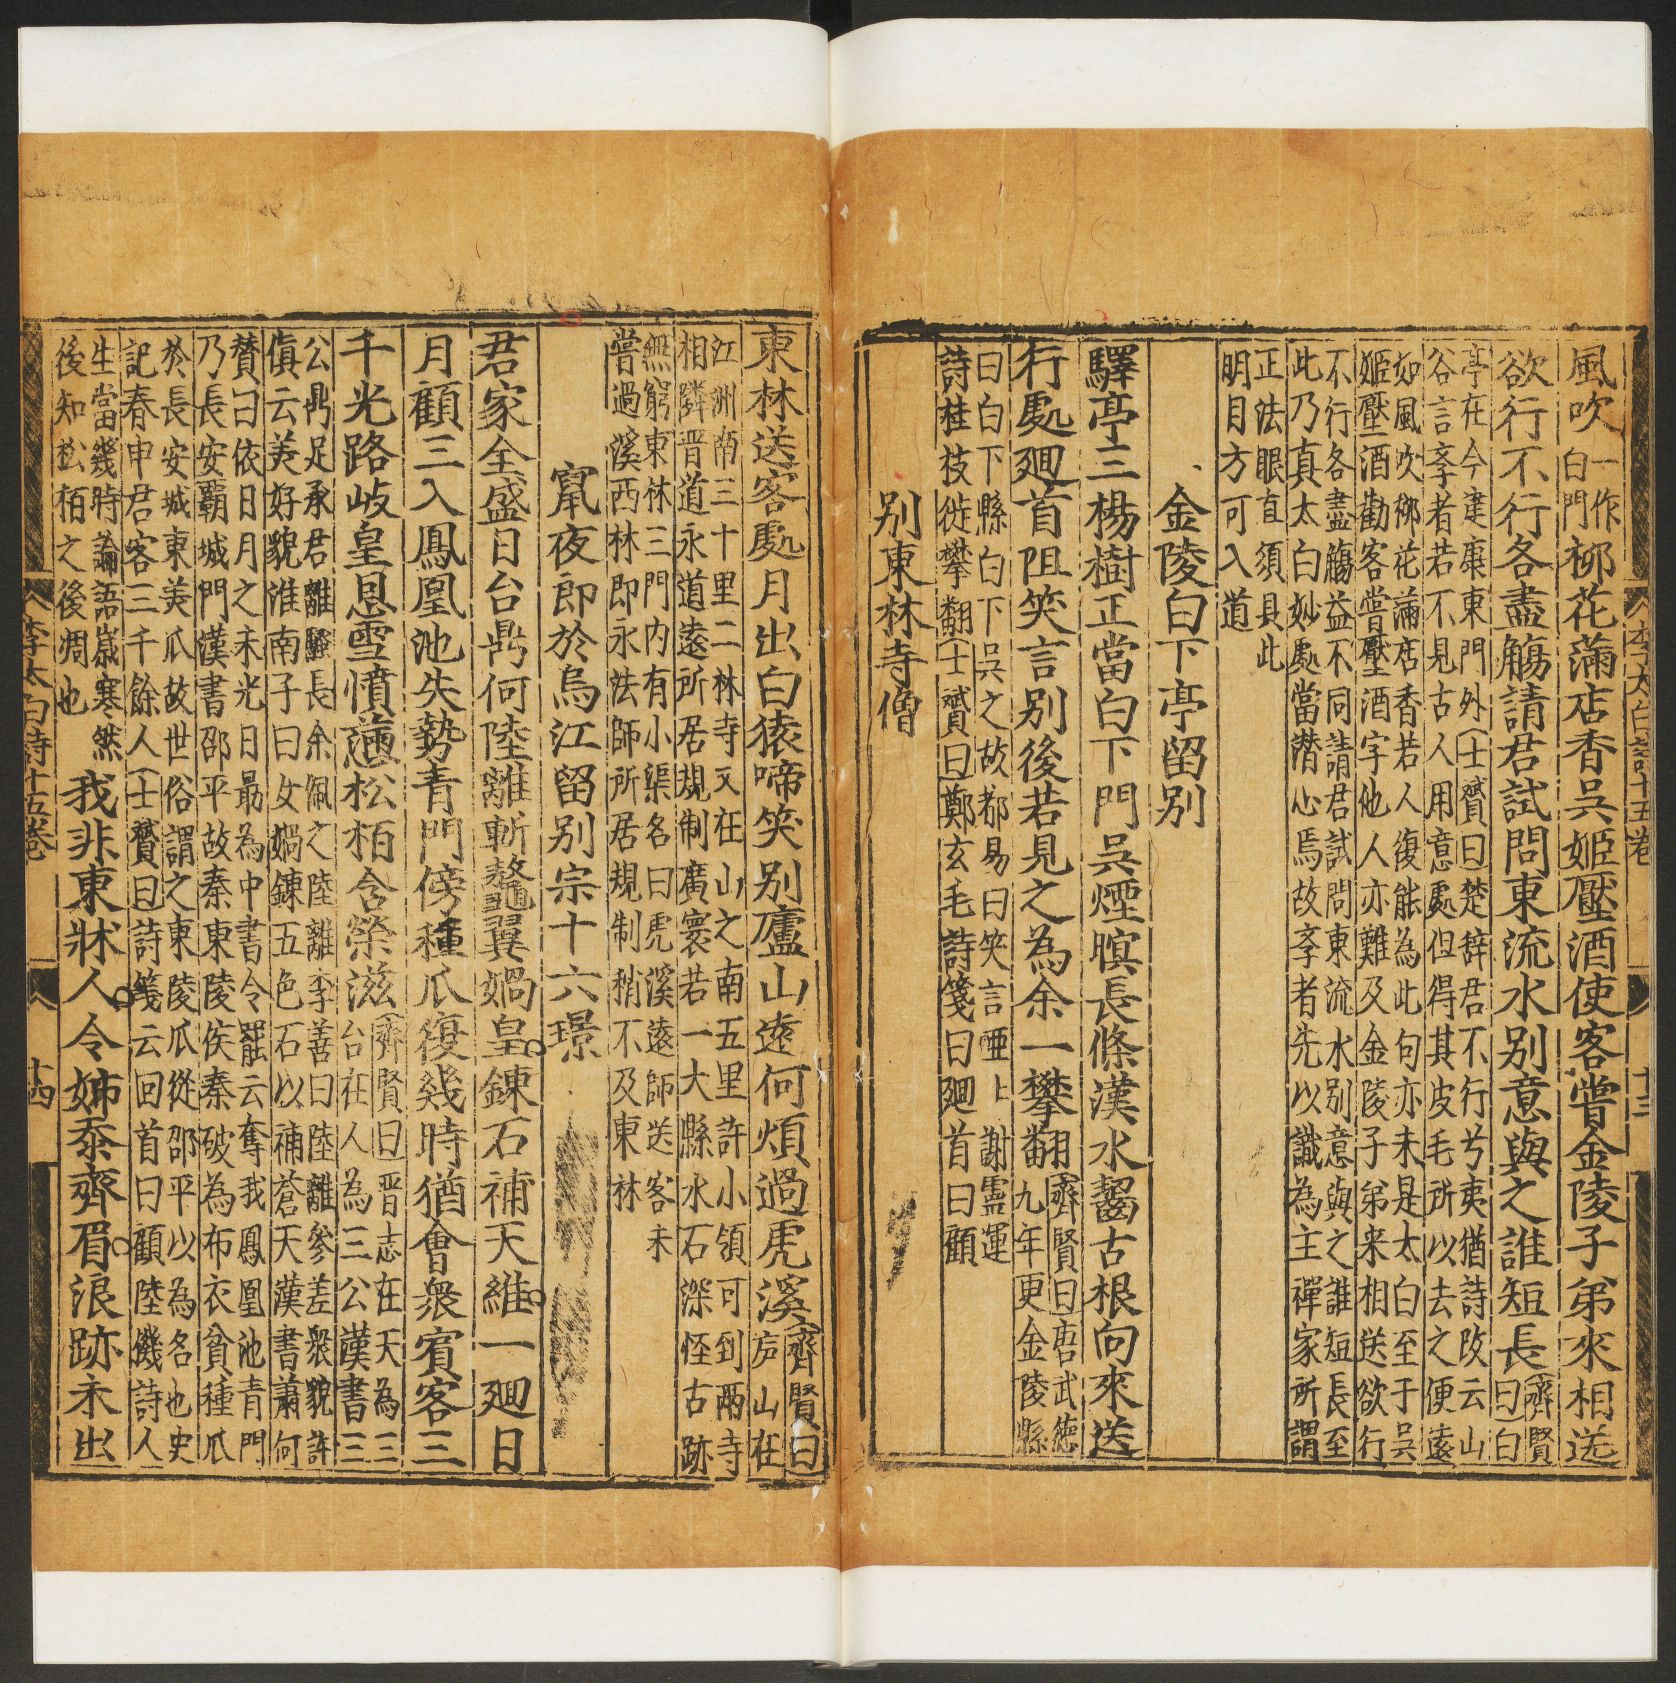 風吹一作白門柳花滿店香吳姬壓酒使客嘗金陵子弟來相送
欲行不行各盡觴請君試問東流水別意與之誰短長齊賢曰白
亭在今建康東門外士贇曰楚辭君不行兮夷猶詩改云山
谷言李者若不見古人用意處但得其皮毛所以去之便遠
如風吹柳花滿店香若人復能為此句亦未是太白至于吳
姬壓酒勸客嘗壓酒字他人亦難及金陵子弟来相送欲行
不行各盡觴益不同請君試問東流水別意與之誰短長至
此乃真太白妙處當潜心焉故李者先以識為主禪家所謂
正法眼直須具此
明目方可入道
金陵白下亭留別
驛亭三楊樹正當白下門吳煙暝長條漢水齧古根向來送
行處廻首阻笑言別後若見之為余一攀翻齊賢曰唐武德九年更金陵縣
曰白下縣白下吳之故都易曰笑言啞上謝靈運
詩桂枝徙攀翻士贇曰鄭玄毛詩箋曰廻首曰顧
別東林寺僧
東林送客處月出白猿啼笑別廬山遠何煩過虎溪齊賢曰庐山在
江洲南三十里二林寺又在山之南五里許小領可到兩寺
相隣晋道永道遠所居規制廣寰若一大縣水石深恠古跡
無窮東林三門内有小渠名曰虎溪遠師送客未
嘗過溪西林即永法師所居規制稍不及東林
竄夜郎於烏江留別宗十六璟
君家全盛日台鼎何陸離斬鼇翼媧皇鍊石補天維一廻日
月顧三入鳳凰池失勢青門傍種瓜復幾時猶會衆賓客三
千光路岐皇恩雪憤懣松栢含榮滋齊賢曰晋志在天為三台在人為三公漢書三
公鼎足承君離騷長余佩之陸離李善曰陸離參差衆貌許
慎云美好貌淮南子曰女媧鍊五色石以補蒼天漢書蕭何
賛曰依日月之末光日最為中書令罷云奪我鳳凰池青門
乃長安覇城門漢書邵平故秦東陵侯秦破為布衣貧種瓜
於長安城東美瓜故世俗謂之東陵瓜從邵平以為名也史
記春申君客三千餘人士贇曰詩箋云回首曰顧陸機詩人
生當幾時論語嵗寒然
後知松栢之後凋也我非東牀人令姊忝齊眉浪跡未出
李太白詩十五卷
十三
李太白詩十五卷
十四